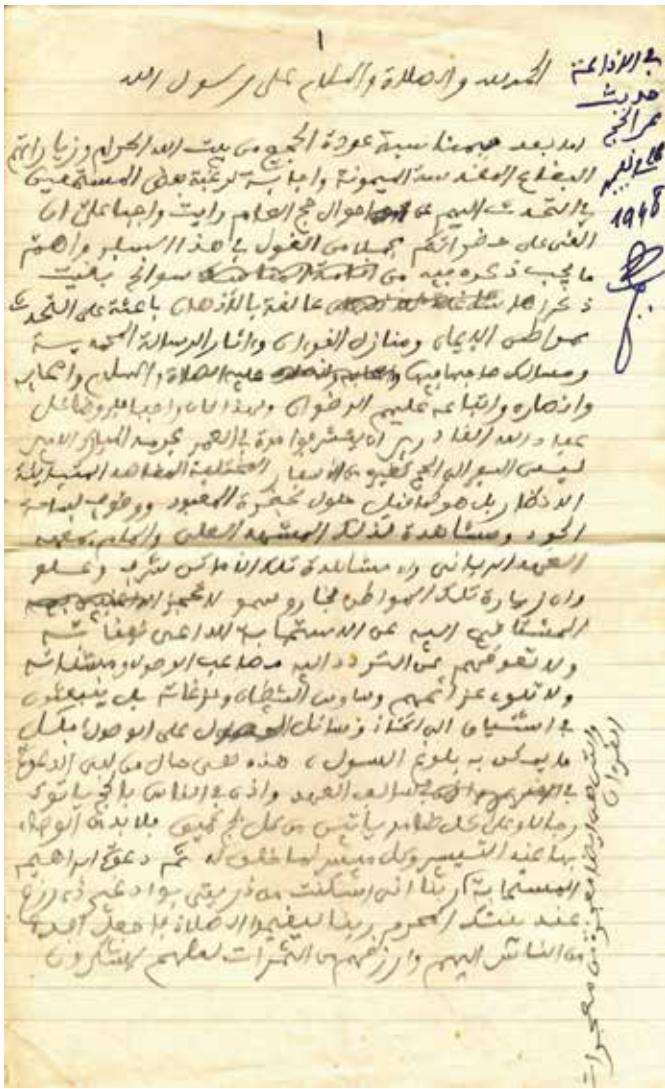 ١
في الإذاعة
حديث
عن الحج
1948
الحمد لله والصلاة والسلام على رسول الله
اما بعد فبمناسبة عودة الحجيج من بيت الله الحرام وزياراتهم
البقاع المقدسة الميمونة واجابة لرغبة بعض المستمعين
في التحدث اليهم عن احوال حج العام رايت واجبا علي ان
القي على حضراتكم جملا من القول في هذا السبيل واهم
ما يجب ذكره فيه من سوانح بقيت
ذكراها عالقة بالأذهان باعثة على التحدث
بمواطن الايمان ومنازل القرءان واثار الرسالة المحمدية
ومسالك صاحبها عليه الصلاة والسلام واصحابه
وانصاره واتباعه عليهم الرضوان ولهذا كان واجبا مفروضا على
عباد الله القادرين ان مرة في العمر
ليس السفر الى الحج كغيره من الاسفار المختلفة المقاصد المتباينة
الانظار بل هو حلول بحضرة المعبود ووقوف بساحة
الجود ومشاهدة لذلك المشهد العلي والمام بمعهد
العهد الرباني وان مشاهدة تلك الاماكن شرف وعلو
وان زيارة تلك المواطن فخار وسمو
المشتاقين اليه عن الاستجابة للداعي
ولا تعوقهم عن التردد اليه مصاعب الوصول ومشقاته
ولا تلوي عزائمهم وساوس الشيطان ونزغاته بل ينبعثون
في اشتياق الى اتخاذ وسائل على الوصول بكل
ما يمكن به بلوغ السول، هذه هي حال من لبى الدعوة
في سالف العهد واذن في الناس بالحج ياتوك
رجالا وعلى كل ضامر ياتين من كل فج عميق فلا بد من الوصول
بها عند التيسير وكل ميسر لما خلق له ثم دعوة ابراهيم
المستجابة ربنا اني اسكنت من ذريتي بواد غير ذي زرع
عند بيتك المحرم ربنا ليقيموا الصلاة فاجعل افئدة
من الناس اليهم وارزقهم من الثمرات لعلهم يشكرون
والتي هي ايضا معجزة من معجزات
القرءان